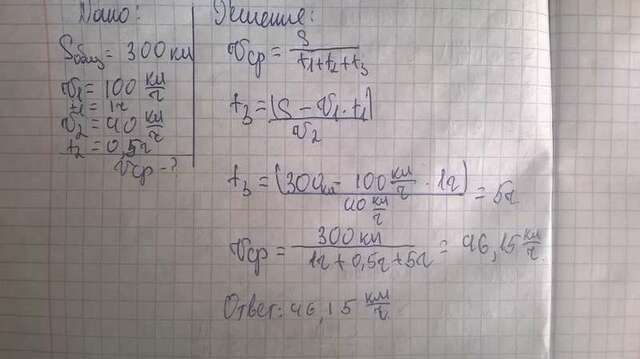 Дано:
Sобщ = 300 км
v1 = 100 км/ч
t1 = 1ч
v2 = 40 км/ч
t2 = 0,5ч
vср - ?
Решение:
vср = S / (t1+t2+t3)
t3 = (S - v1 · t1) / v2
t3 = (300км - 100 км/ч · 1ч) / 40 км/ч = 5ч
vср = 300 км / (1ч + 0,5ч + 5ч) = 46,15 км/ч
Ответ: 46,15 км/ч